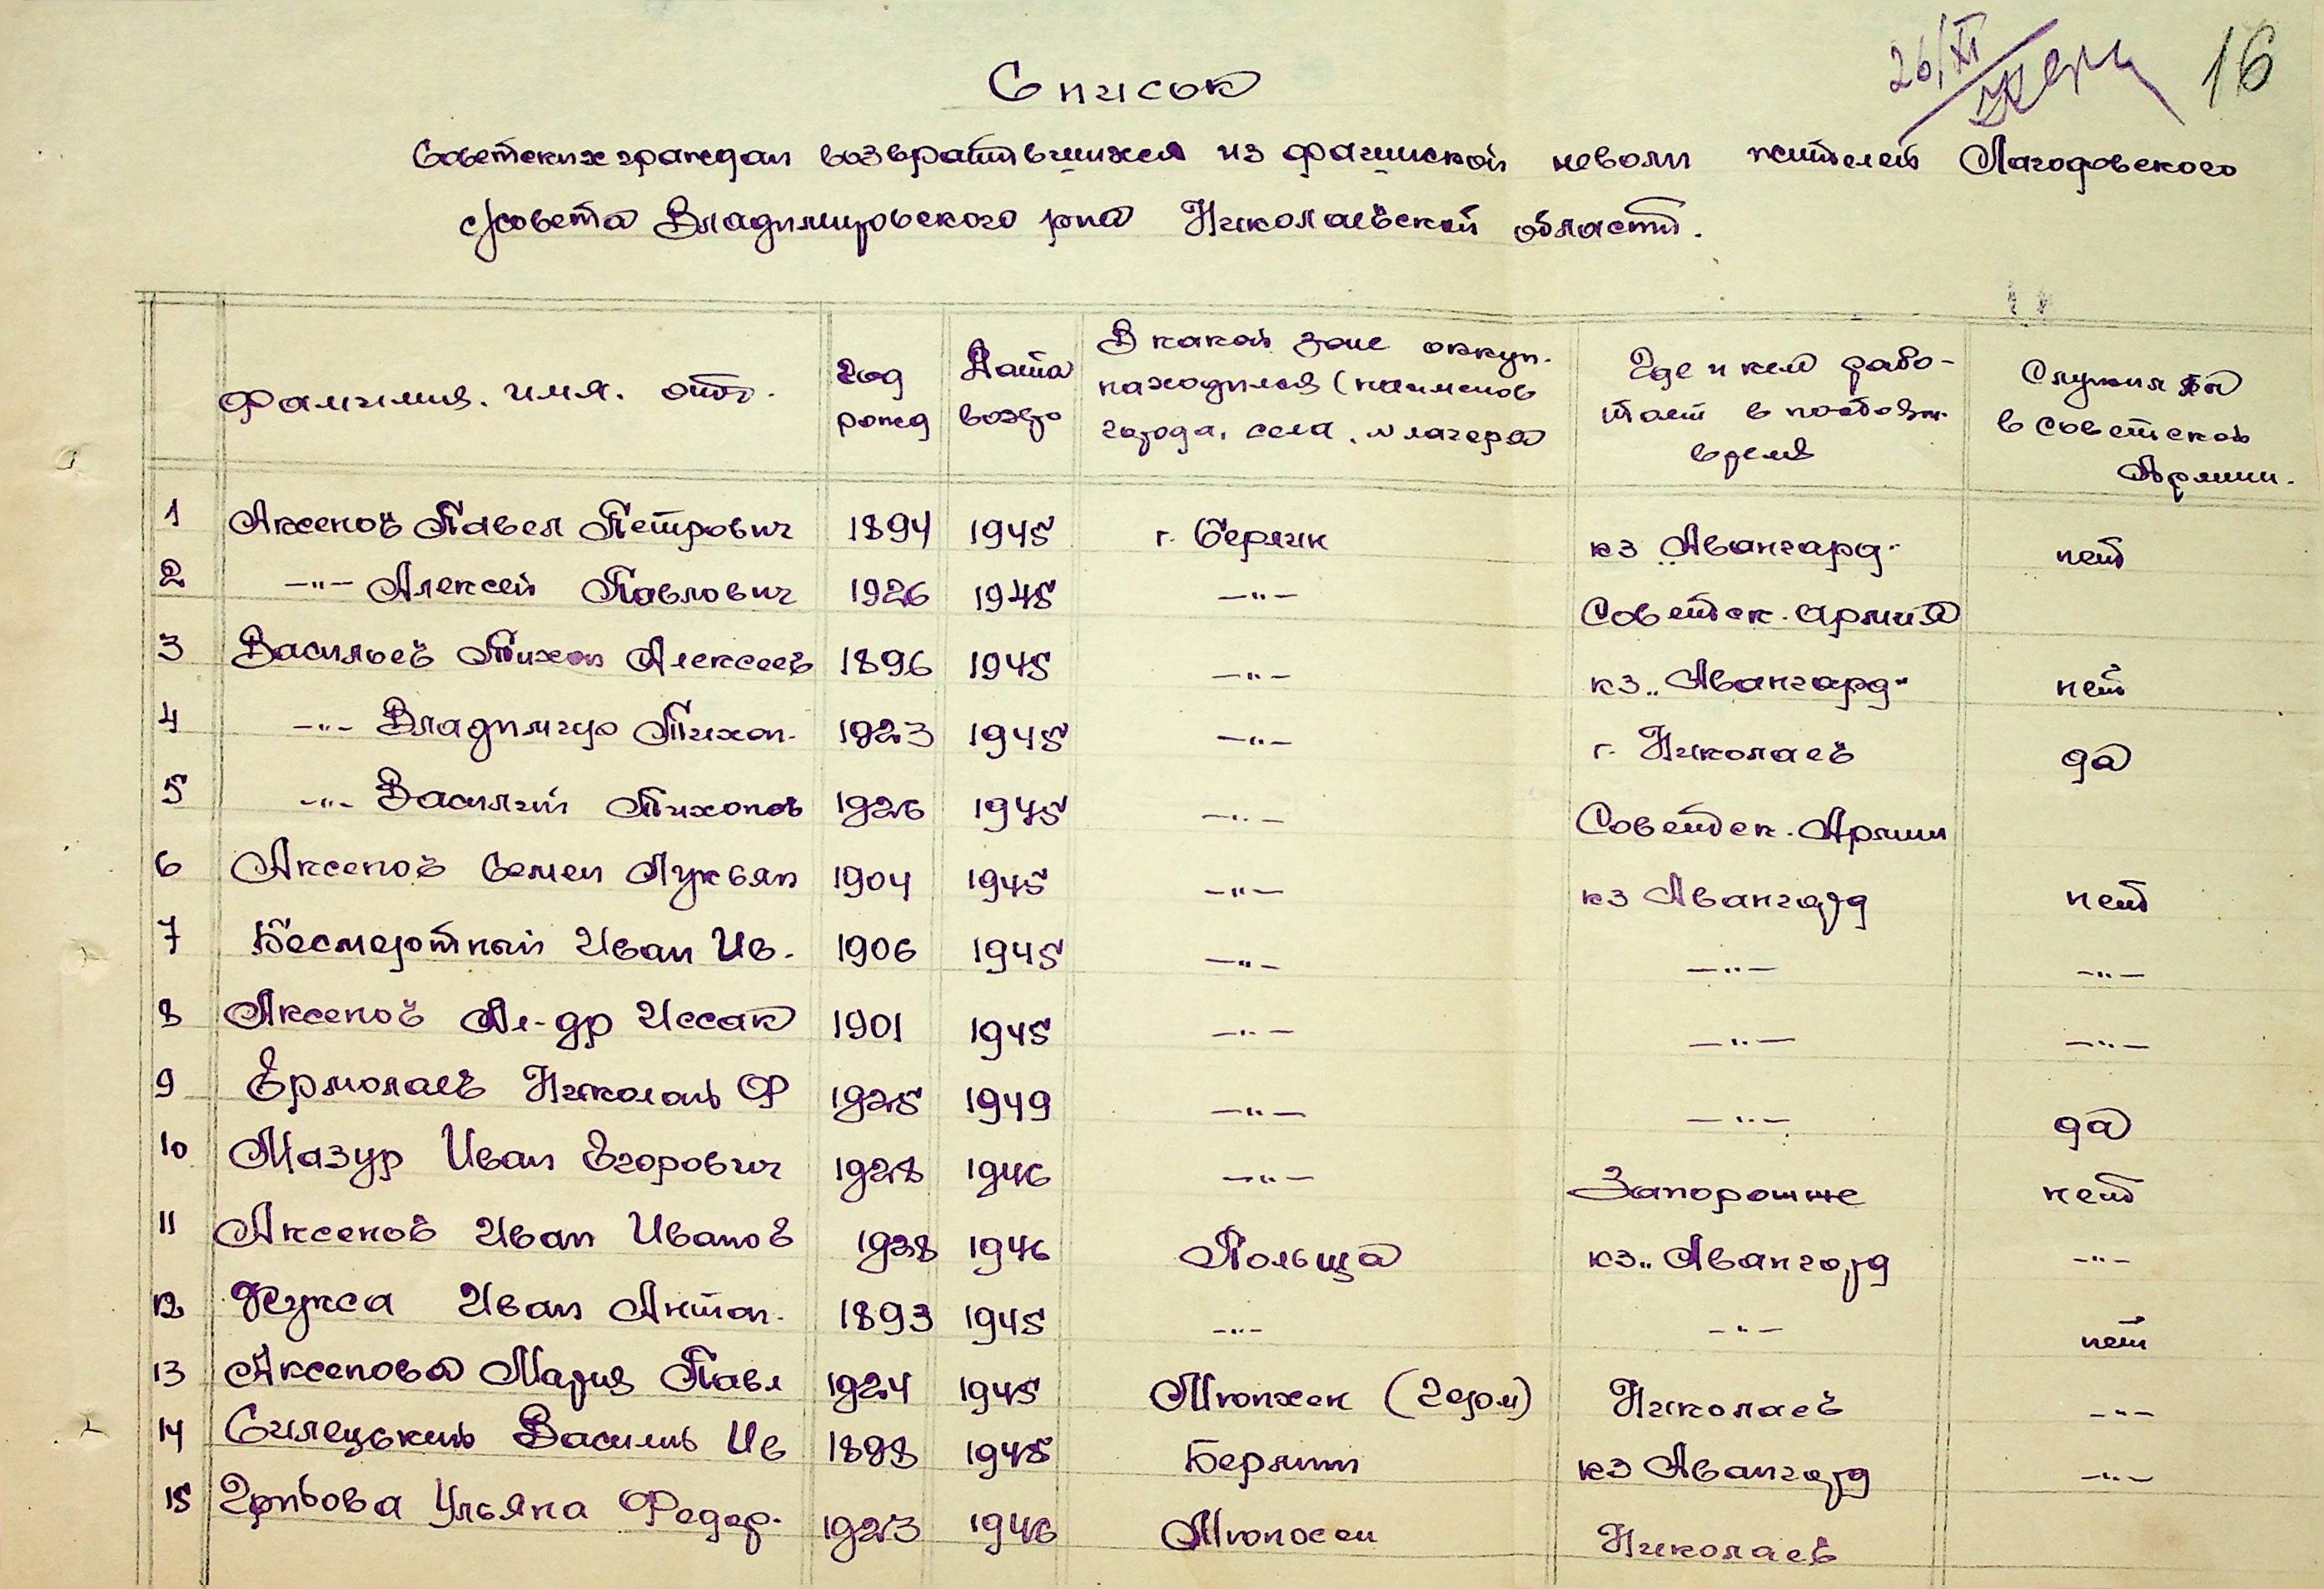 26/XI
16
Список
Советских граждан возвратившихся из фашиской неволи жителей Лагодовского
с/совета Владимировского р-на Николаевской области.
Фамилия. имя. отч.
Год рожд
Дата возвр
В какой зоне оккуп. находился (наименов города, села, и лагеря
Где и кем рабо-тает в настоящ. время
Служил ли в советской Армии.
1 Аксенов Павел Петрович 1894 1945 г. Берлин кз „Авангард" нет
2 —"— Алексей Павлович 1926 1945 —"— Советск. армия
3 Васильев Тихон Алексеев 1896 1945 —"— кз „Авангард" нет
4 —"— Владимир Тихон. 1923 1945 —"— г. Николаев да
5 —"— Василий Тихонов 1926 1945 —"— Советск. Армии
6 Аксенов Семен Лукьян 1904 1945 —"— кз Авангард нет
7 Бесмертный Иван Ив. 1906 1945 —"— —"— —"—
8 Аксенов Ал-др Иссак 1901 1945 —"— —"— —"—
9 Ермолаев Николай Ф 1925 1949 —"— —"— да
10 Мазур Иван Егорович 1928 1946 —"— Запорожже нет
11 Аксенов Иван Иванов 1938 1946 Польща кз „Авангард —"—
12 Кукса Иван Антон. 1893 1945 —"— —"— нет
13 Аксенова Мария Павл 1924 1945 Мюнхен (Герм) Николаев —"—
14 Силецький Василь Ив 1898 1945 Берлин кз Авангард —"—
15 Грибова Ульяна Федор. 1923 1946 Николаев